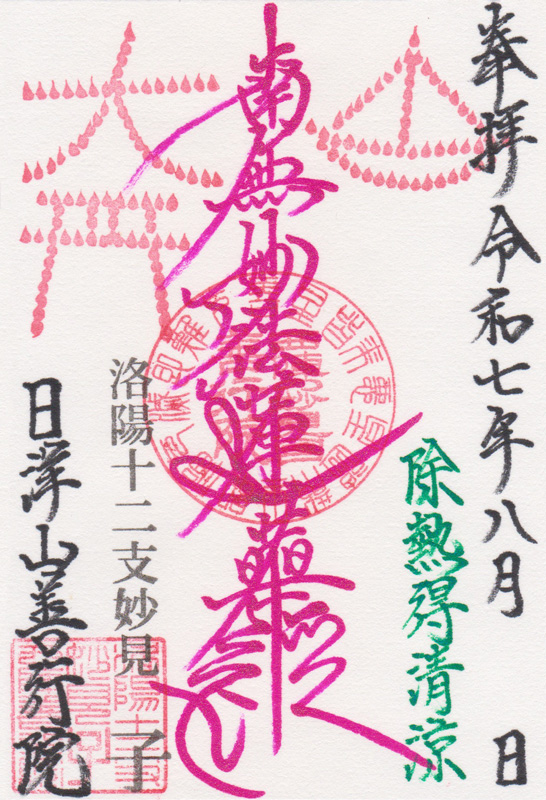 奉拝 令和七年八月 日
除熱得清涼
南無妙法蓮華経
洛陽十二支妙見 子
日洋山善行院
大
山